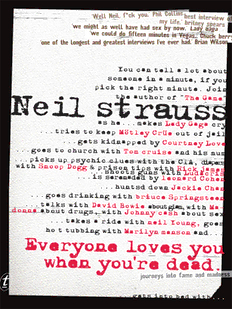 Well Neil, f*ck you. Phil Collins
best interview of
my life, britney spears
we might as well have had sex by now. Lady Gaga
we could do fifteen minutes in Vegas. Chuck Berr
one of the longest and greatest interviews I've ever had. Brian Wilson
You can tell a lot about
someone in a minute, if you
pick the right minute. Join
the author of "The Game"
Neil strauss
as he ... makes Lady Gaga cry
...tries to keep Mötley Crüe out of jail
...gets kidnapped by Courtney Love
...goes to church with Tom cruise and his mo
...picks up psychic clues with the CIA, diapers
with Snoop Dogg & prison tips with Rick James
...shoots guns with Ludacris
...is serenaded by Leonard Cohen
...hunted down Jackie Chan
...goes drinking with bruce Springsteen
...talks with David Bowie about
donna about drugs, with Johnny cash about sex
...takes a ride with neil Young, goes
hot tubbing with Marilyn manson and
Everyone loves you
when you're dead
journeys into fame and madness
...gets into bed with...